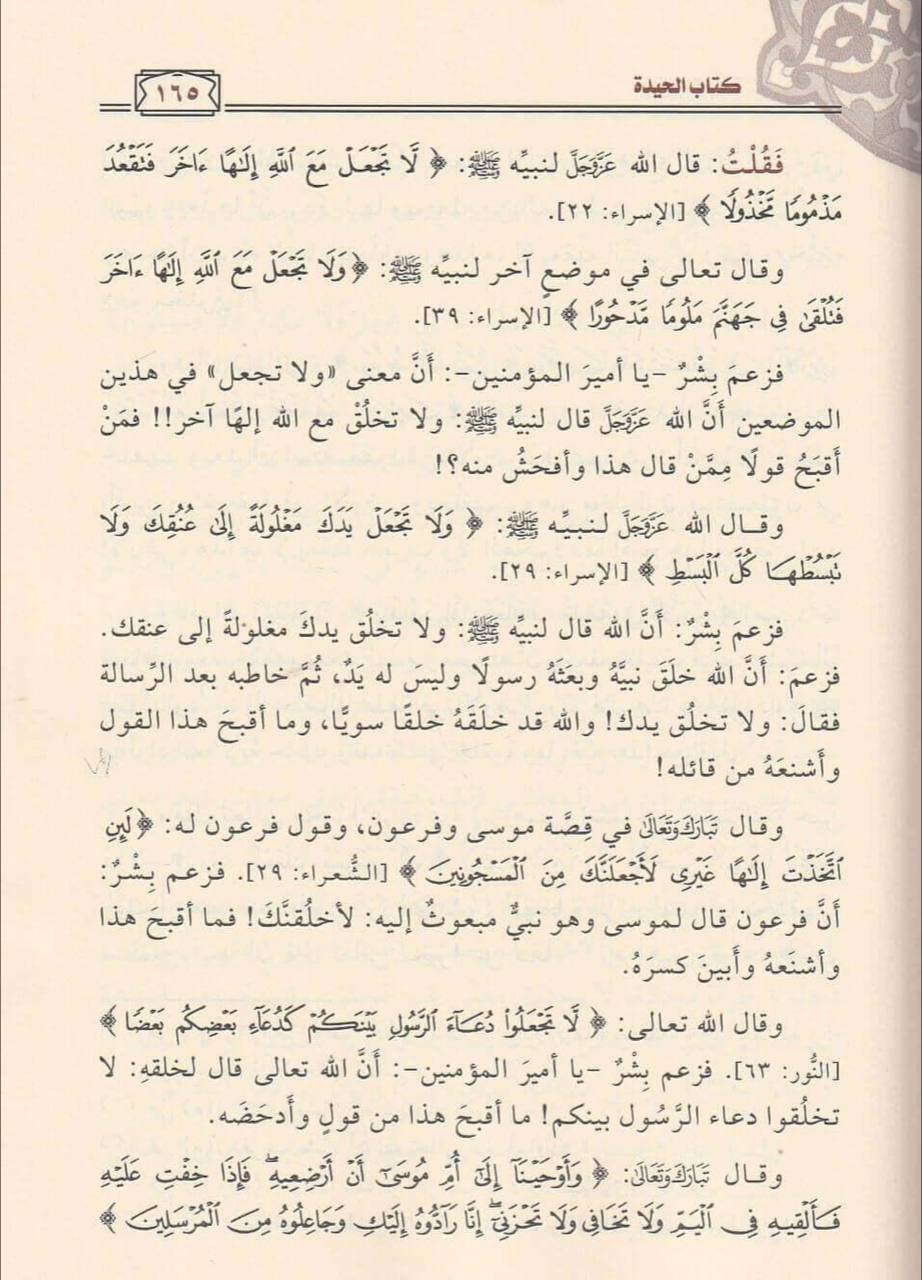 كتاب الحيدة
١٦٥
فَقُلْتُ: قال الله عَزَّوَجَلَّ لنبيِّه ﷺ: ﴿ لَّا تَجْعَلْ مَعَ ٱللَّهِ إِلَـٰهًا ءَاخَرَ فَتَقْعُدَ
مَذْمُومًا مَّخْذُولًا ﴾ [الإسراء: ٢٢].
وقال تعالى في موضعٍ آخر لنبيِّه ﷺ: ﴿وَلَا تَجْعَلْ مَعَ ٱللَّهِ إِلَـٰهًا ءَاخَرَ
فَتُلْقَىٰ فِي جَهَنَّمَ مَلُومًا مَّدْحُورًا ﴾ [الإسراء: ٣٩].
فزعمَ بِشْرٌ -يا أميرَ المؤمنين-: أَنَّ معنى «ولا تجعل» في هذين
الموضعين أَنَّ الله عَزَّوَجَلَّ قال لنبيِّه ﷺ: ولا تخلُقْ مع الله إلهًا آخر!! فمَنْ
أَقبَحُ قولًا مِمَّنْ قال هذا وأفحَشُ منه؟!
وقـال الله عَزَّوَجَلَّ لنبيِّـه ﷺ: ﴿ وَلَا تَجْعَلْ يَدَكَ مَغْلُولَةً إِلَىٰ عُنُقِكَ وَلَا
تَبْسُطْهَـا كُلَّ ٱلْبَسْطِ ﴾ [الإسراء: ٢٩].
فزعمَ بِشْرٌ: أَنَّ الله قال لنبيِّه ﷺ: ولا تخلُق يدكَ مغلولةً إلى عنقك.
فزعمَ: أَنَّ الله خلَقَ نبيَّهُ وبعَثَهُ رسولًا وليسَ له يَدٌ، ثُمَّ خاطبه بعد الرِّسالة
فقالَ: ولا تخلُق يدك! والله قد خلَقَهُ خلقًا سويًّا، وما أقبحَ هذا القول
وأَشنعَهُ من قائله!
وقال تَبَارَكَ وَتَعَالَىٰ في قِصَّة موسى وفرعون، وقول فرعون له: ﴿لَئِنِ
ٱتَّخَذْتَ إِلَـٰهًا غَيْرِى لَأَجْعَلَنَّكَ مِنَ ٱلْمَسْجُونِينَ ﴾ [الشُّعراء: ٢٩]. فزعم بِشْرٌ:
أَنَّ فرعون قال لموسى وهو نبيٌّ مبعوثٌ إليه: لأخلُقنَّكَ! فما أقبحَ هذا
وأشنَعَهُ وأَبينَ كسرَهُ.
وقال الله تعالى: ﴿ لَّا تَجْعَلُوا۟ دُعَآءَ ٱلرَّسُولِ بَيْنَكُمْ كَدُعَآءِ بَعْضِكُم بَعْضًا ﴾
[النُّور: ٦٣]. فزعم بِشْرٌ -يا أميرَ المؤمنين-: أَنَّ الله تعالى قال لخلقهِ: لا
تخلُقوا دعاء الرَّسُول بينكم! ما أقبحَ هذا من قولٍ وأَدحَضَه.
وقـال تَبَارَكَ وَتَعَالَىٰ: ﴿ وَأَوْحَيْنَآ إِلَىٰٓ أُمِّ مُوسَىٰٓ أَنْ أَرْضِعِيهِ ۖ فَإِذَا خِفْتِ عَلَيْهِ
فَـأَلْقِيهِ فِى ٱلْيَمِّ وَلَا تَخَافِى وَلَا تَحْزَنِىٓ ۖ إِنَّا رَآدُّوهُ إِلَيْكِ وَجَاعِلُوهُ مِنَ ٱلْمُرْسَلِينَ ﴾